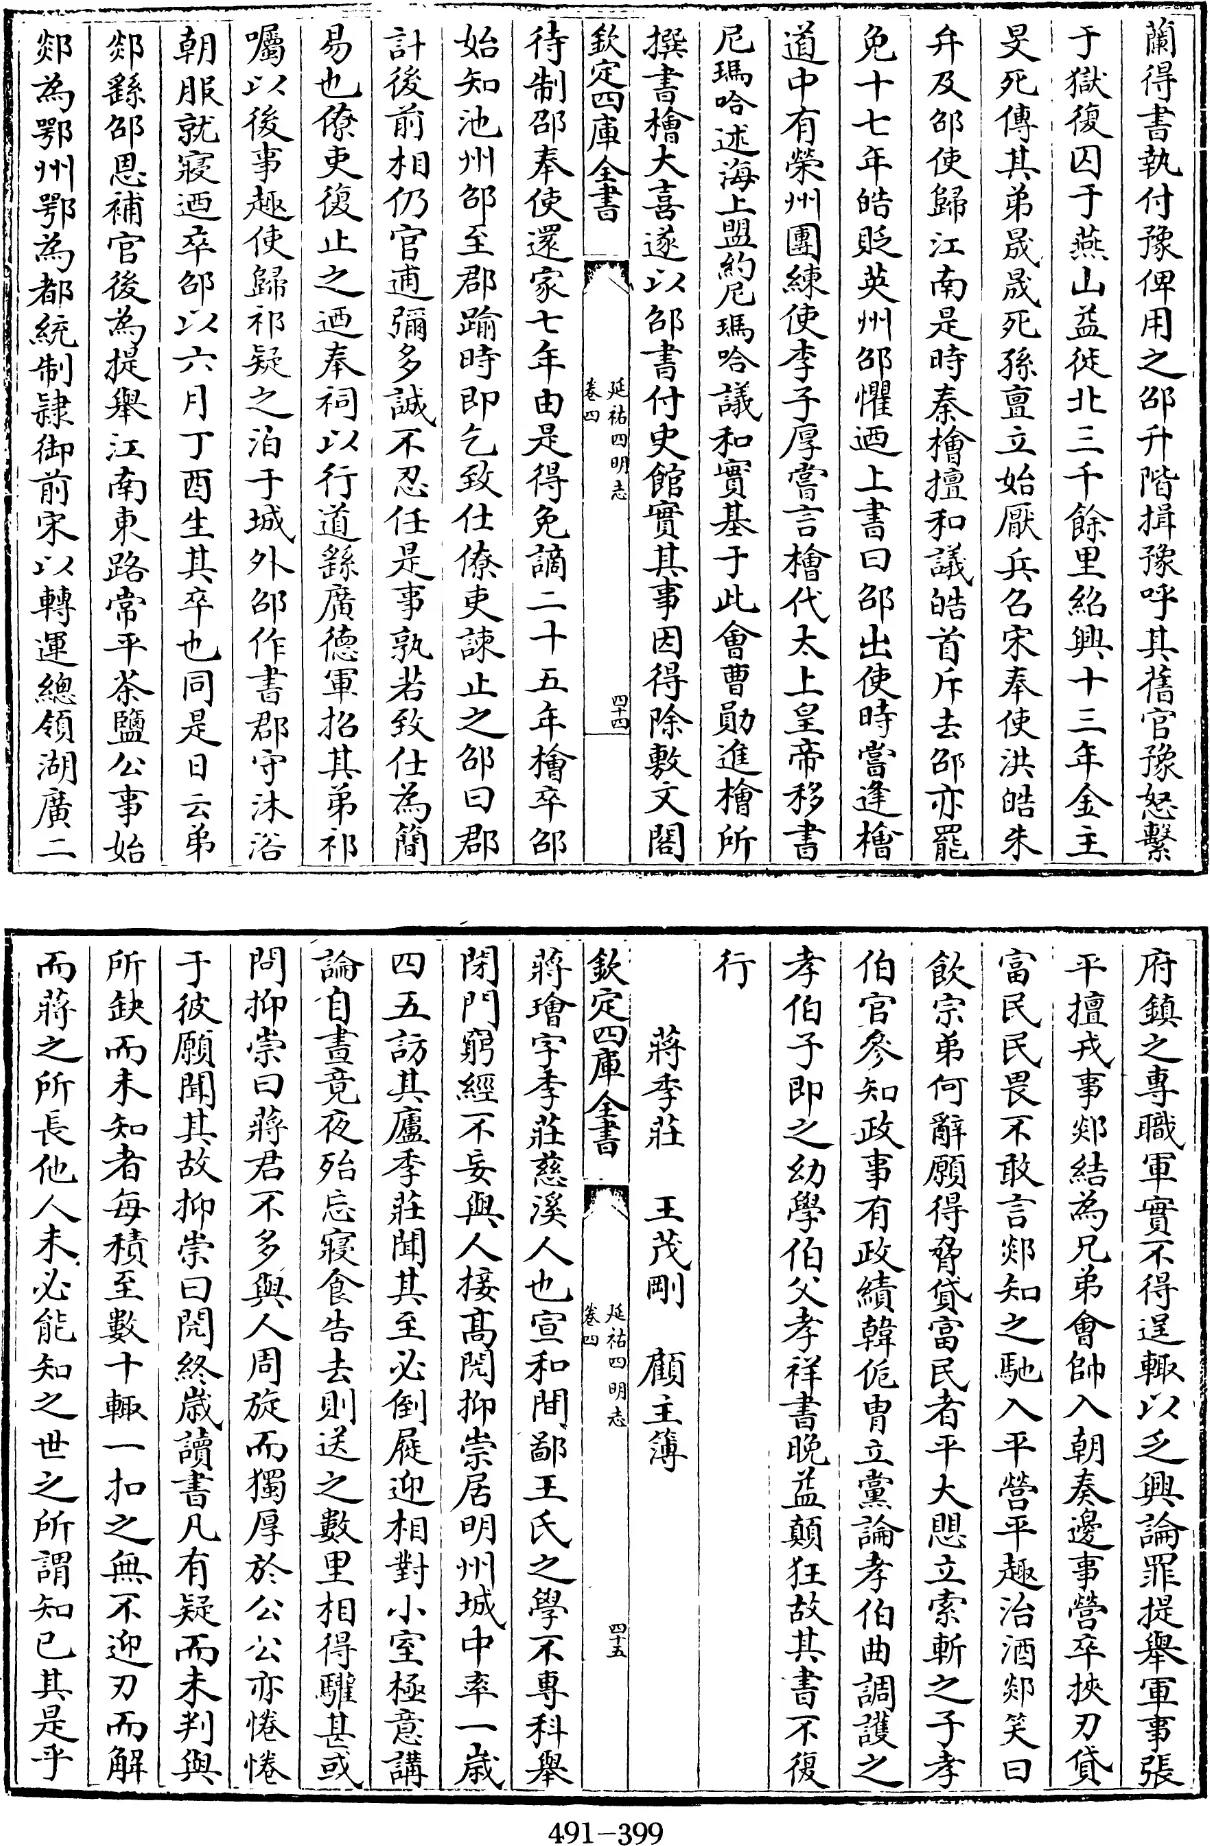 蘭得書執付豫俾用之邵升階揖豫呼其舊官豫怒繫
于獄復囚于燕山益徙北三千餘里紹興十三年金主
旻死傳其弟晟晟死孫亶立始厭兵名宋奉使洪皓朱
弁及邵使歸江南是時秦檜擅和議皓首斥去邵亦罷
免十七年皓貶英州邵懼迺上書曰邵出使時嘗逢檜
道中有榮州團練使李子厚嘗言檜代太上皇帝移書
尼瑪哈述海上盟約尼瑪哈議和實基于此會曹勛進檜所
撰書檜大喜遂以邵書付史館實其事因得除敷文閣
欽定四庫全書
延祐四明志
卷四
四十四
待制邵奉使還家七年由是得免謫二十五年檜卒邵
始知池州邵至郡踰時即乞致仕僚吏諫止之邵曰郡
計後前相仍官逋彌多誠不忍任是事孰若致仕為簡
易也僚吏復止之迺奉祠以行道繇廣德軍招其弟祁
囑以後事趣使歸祁疑之洎于城外邵作書郡守沐浴
朝服就寢迺卒邵以六月丁酉生其卒也同是日云弟
郯繇邵恩補官後為提舉江南東路常平茶鹽公事始
郯為鄂州鄂為都統制隷御前宋以轉運總領湖廣二
府鎮之專職軍實不得逞輙以乏興論罪提舉軍事張
平擅戎事郯結為兄弟會帥入朝奏邊事營卒挾刃貸
富民民畏不敢言郯知之馳入平營平趣治酒郯笑曰
飲宗弟何辭願得脅貸富民者平大愳立索斬之子孝
伯官參知政事有政績韓侂胄立黨論孝伯曲調護之
孝伯子即之幼學伯父孝祥書晚益顛狂故其書不復
行
蔣季莊　王茂剛　顧主簿
欽定四庫全書
延祐四明志
卷四
四十五
蔣璯字季莊慈溪人也宣和間鄙王氏之學不專科舉
閉門窮經不妄與人接髙閌抑崇居明州城中率一歲
四五訪其廬季莊聞其至必倒屣迎相對小室極意講
論自晝竟夜殆忘寢食告去則送之數里相得驩甚或
問抑崇曰蔣君不多與人周旋而獨厚於公公亦惓惓
于彼願聞其故抑崇曰閌終歲讀書凡有疑而未判與
所缺而未知者每積至數十輙一扣之無不迎刃而解
而蔣之所長他人未必能知之世之所謂知已其是乎
491-399